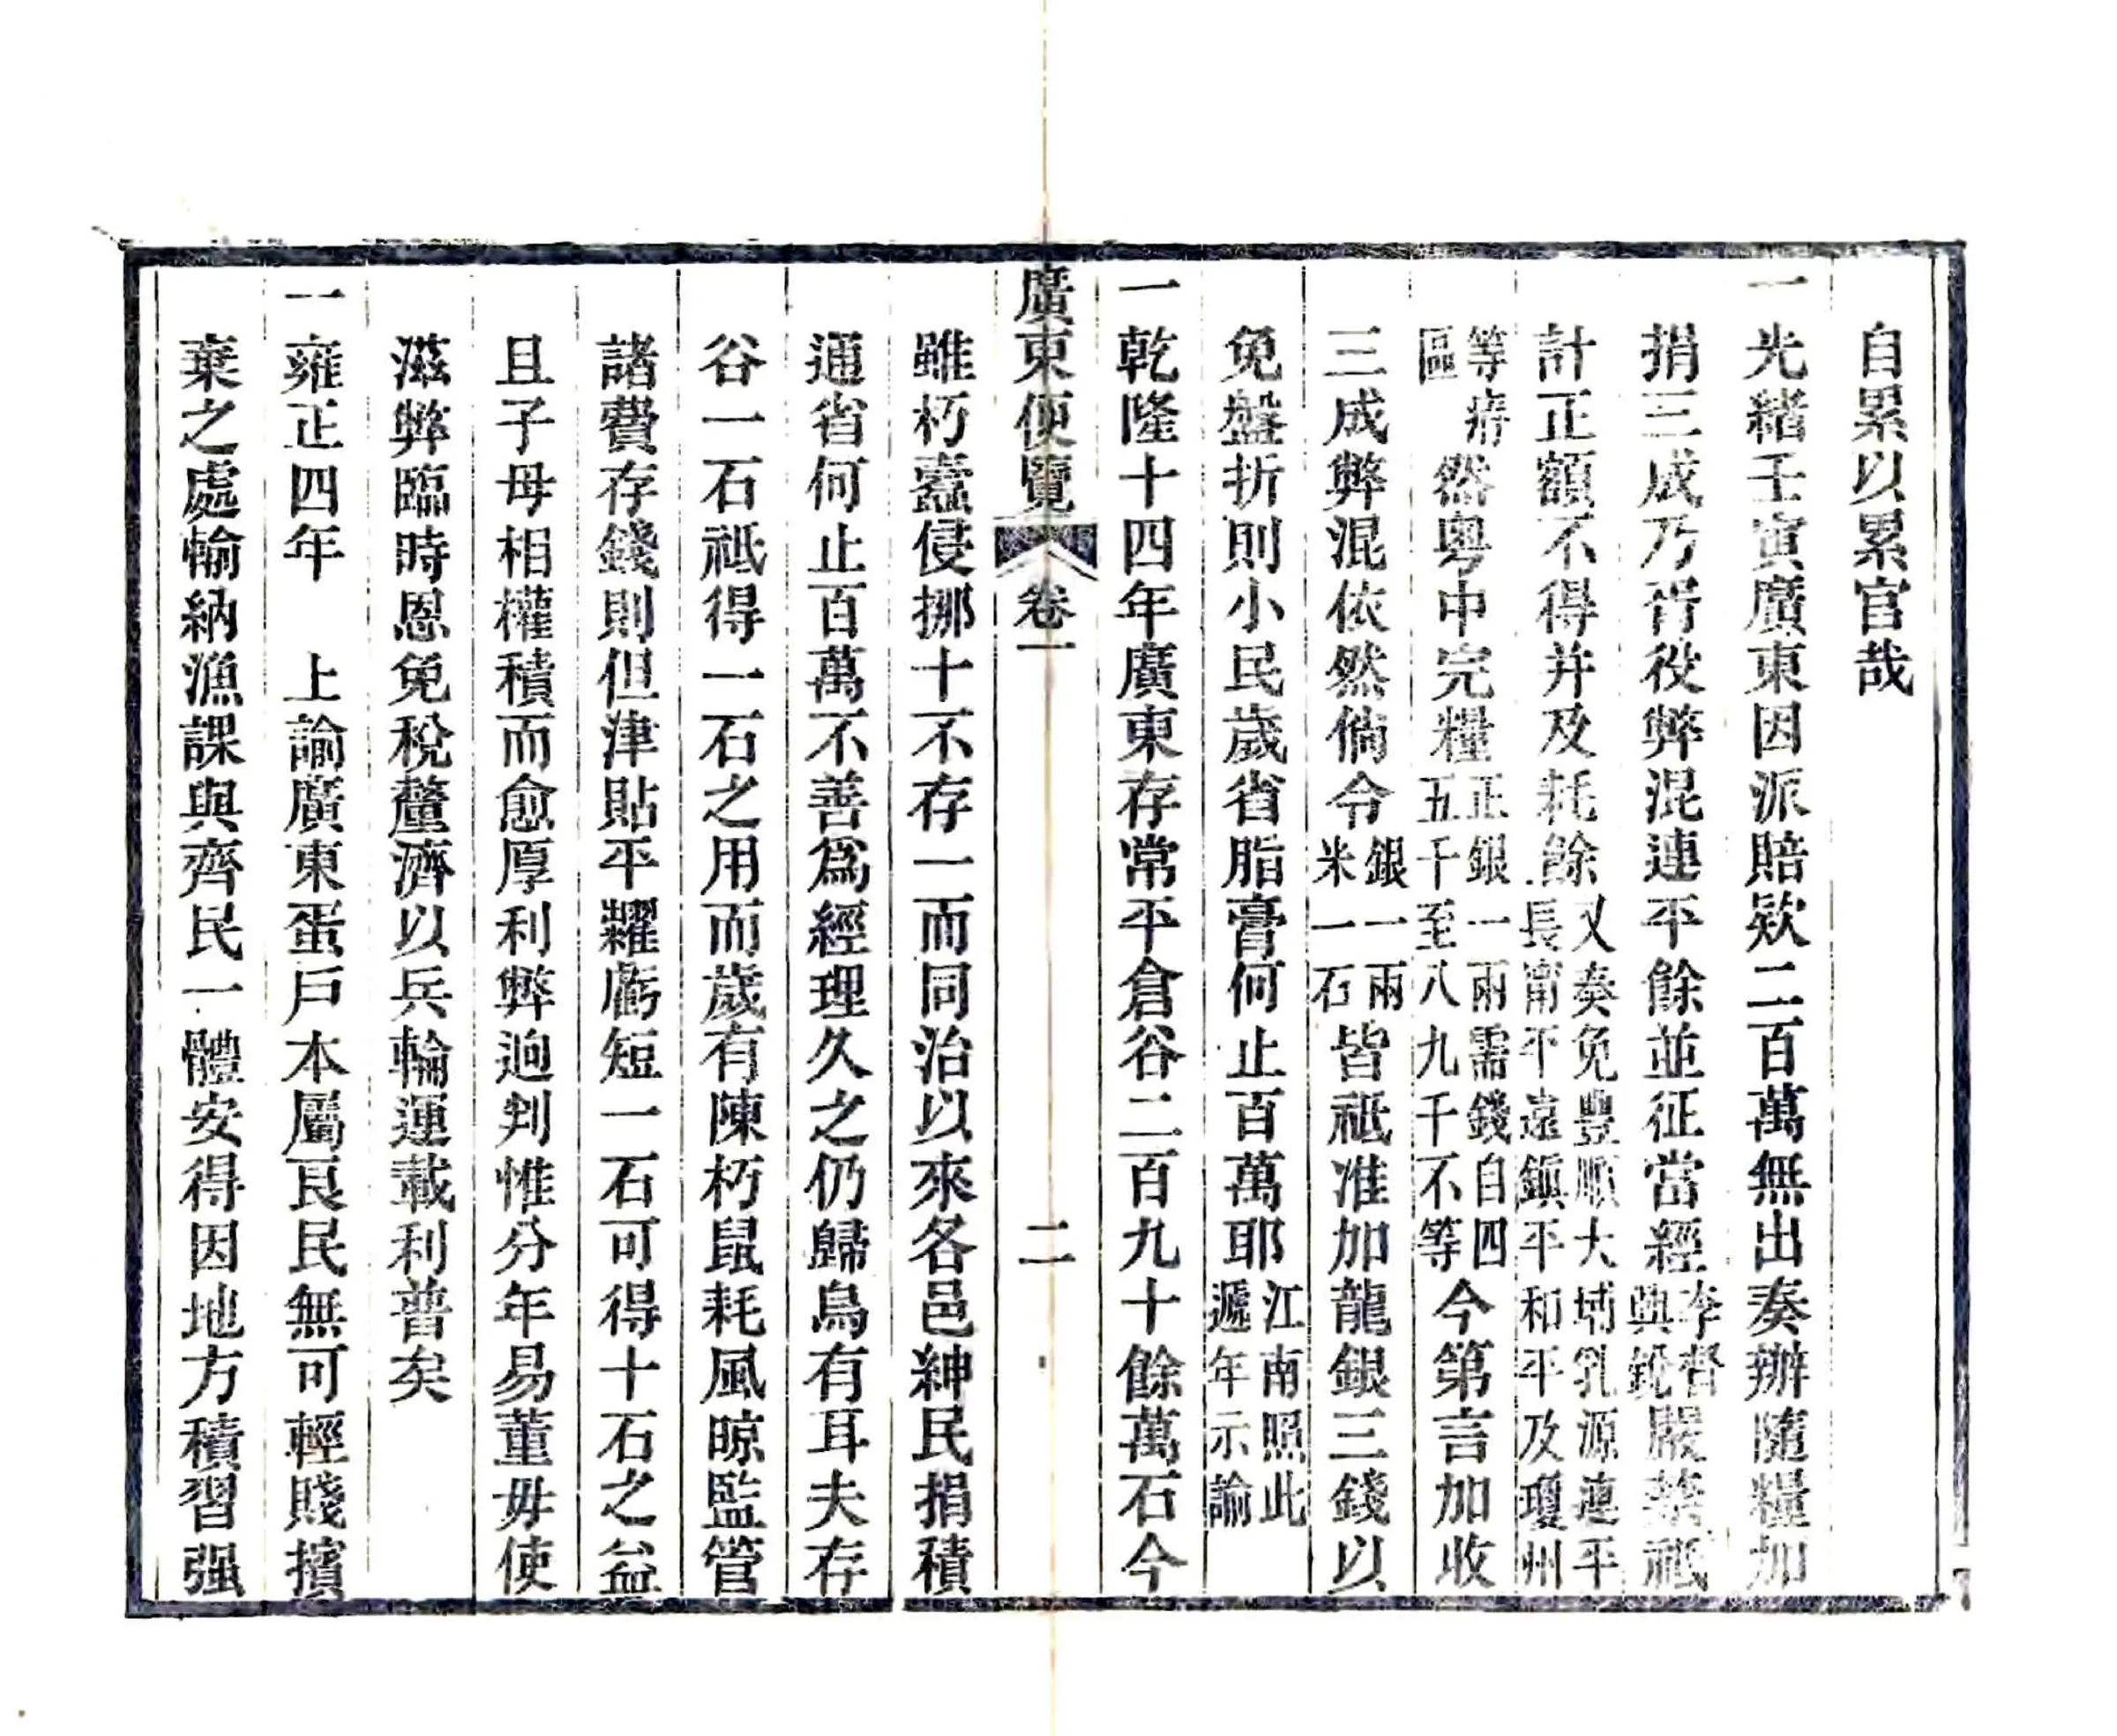 自累以累官哉
一光緒壬寅廣東因派賠欵二百萬無出奏辦隨糧加
捐三成乃胥役弊混連平餘並征當經李督與銳嚴禁祇
計正額不得并及耗餘又奏免豐順大埔乳源連平長甯平遠鎮平和平及瓊州
等瘠區然粵中完糧正銀一兩需錢自四五千至八九千不等今第言加收
三成弊混依然倘令銀一兩米一石皆祗准加龍銀三錢以
免盤折則小民歲省脂膏何止百萬耶江南照此遞年示諭
一乾隆十四年廣東存常平倉谷二百九十餘萬石今
廣東便覽 卷一 二
雖朽蠹侵挪十不存一而同治以來各邑紳民捐積
通省何止百萬不善爲經理久之仍歸烏有耳夫存
谷一石祗得一石之用而歲有陳朽鼠耗風晾監管
諸費存錢則但津貼平糶虧短一石可得十石之益
且子母相權積而愈厚利弊迥判惟分年易董毋使
滋弊臨時恩免稅釐濟以兵輪運載利普矣
一雍正四年　上諭廣東蛋戶本屬良民無可輕賤擯
棄之處輸納漁課與齊民一體安得因地方積習强